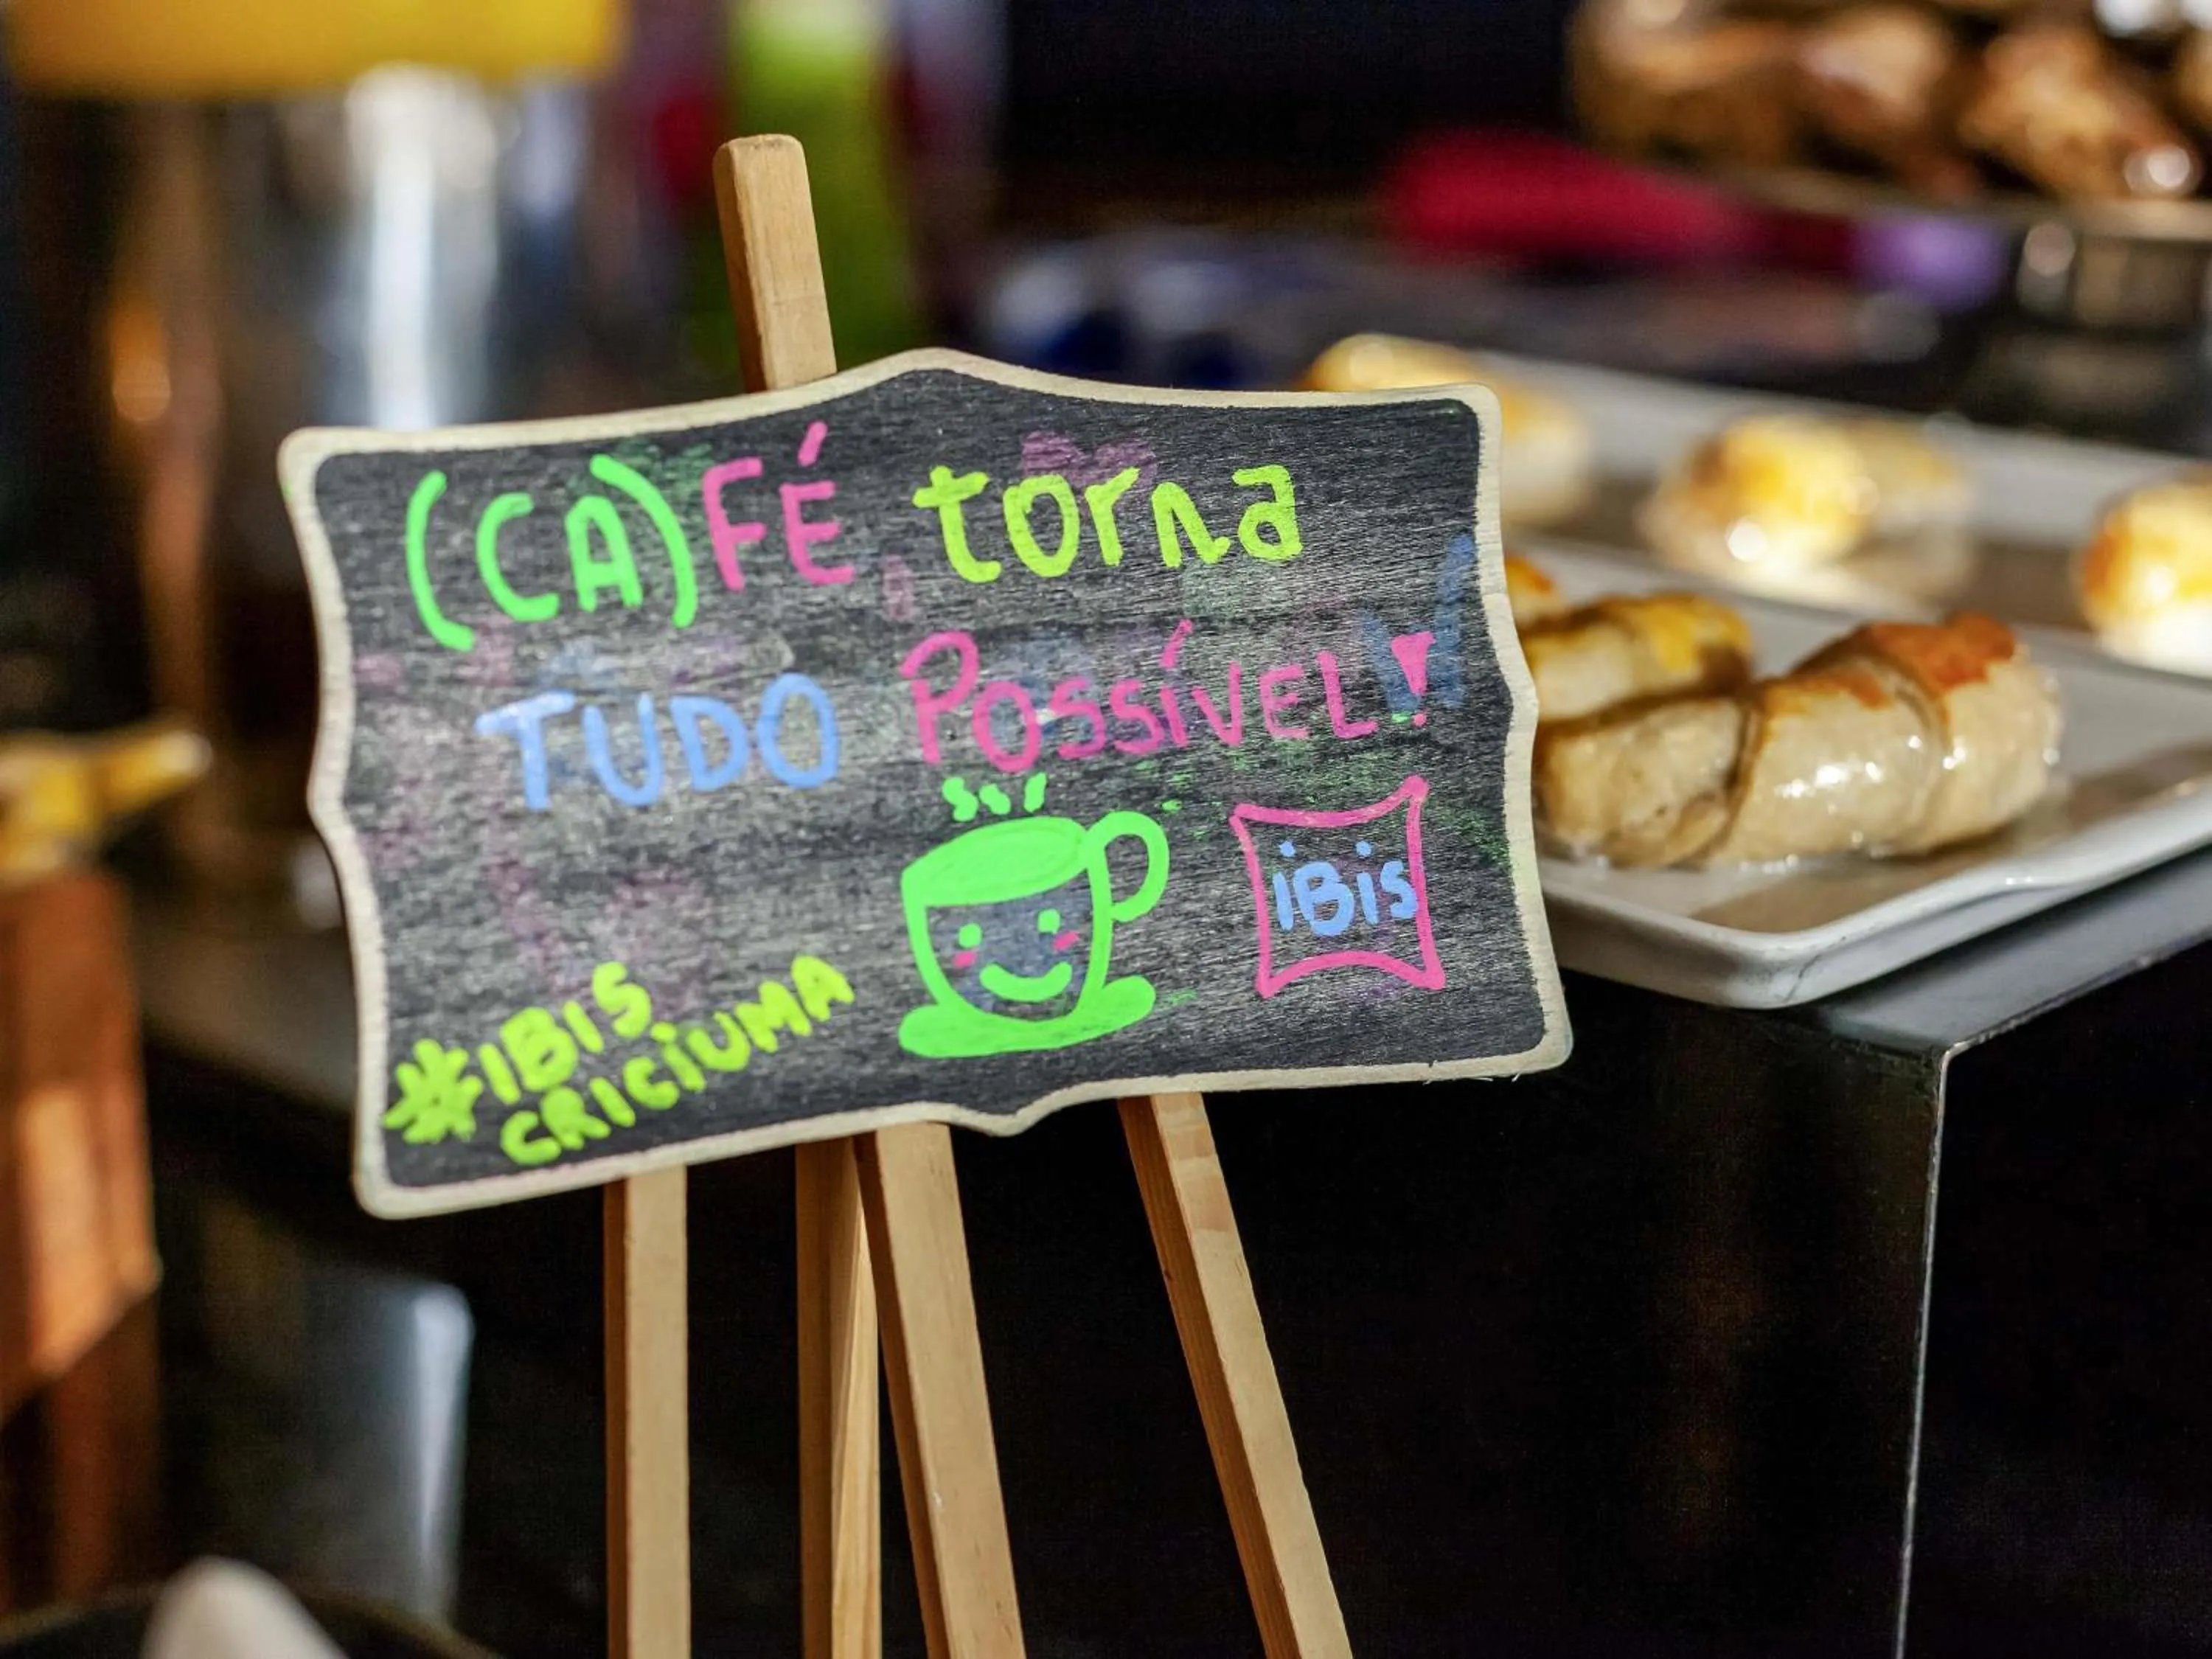 (CA)FÉ torna
TUDO POSSÍVEL!
iBis
#IBIS
CRICIUMA